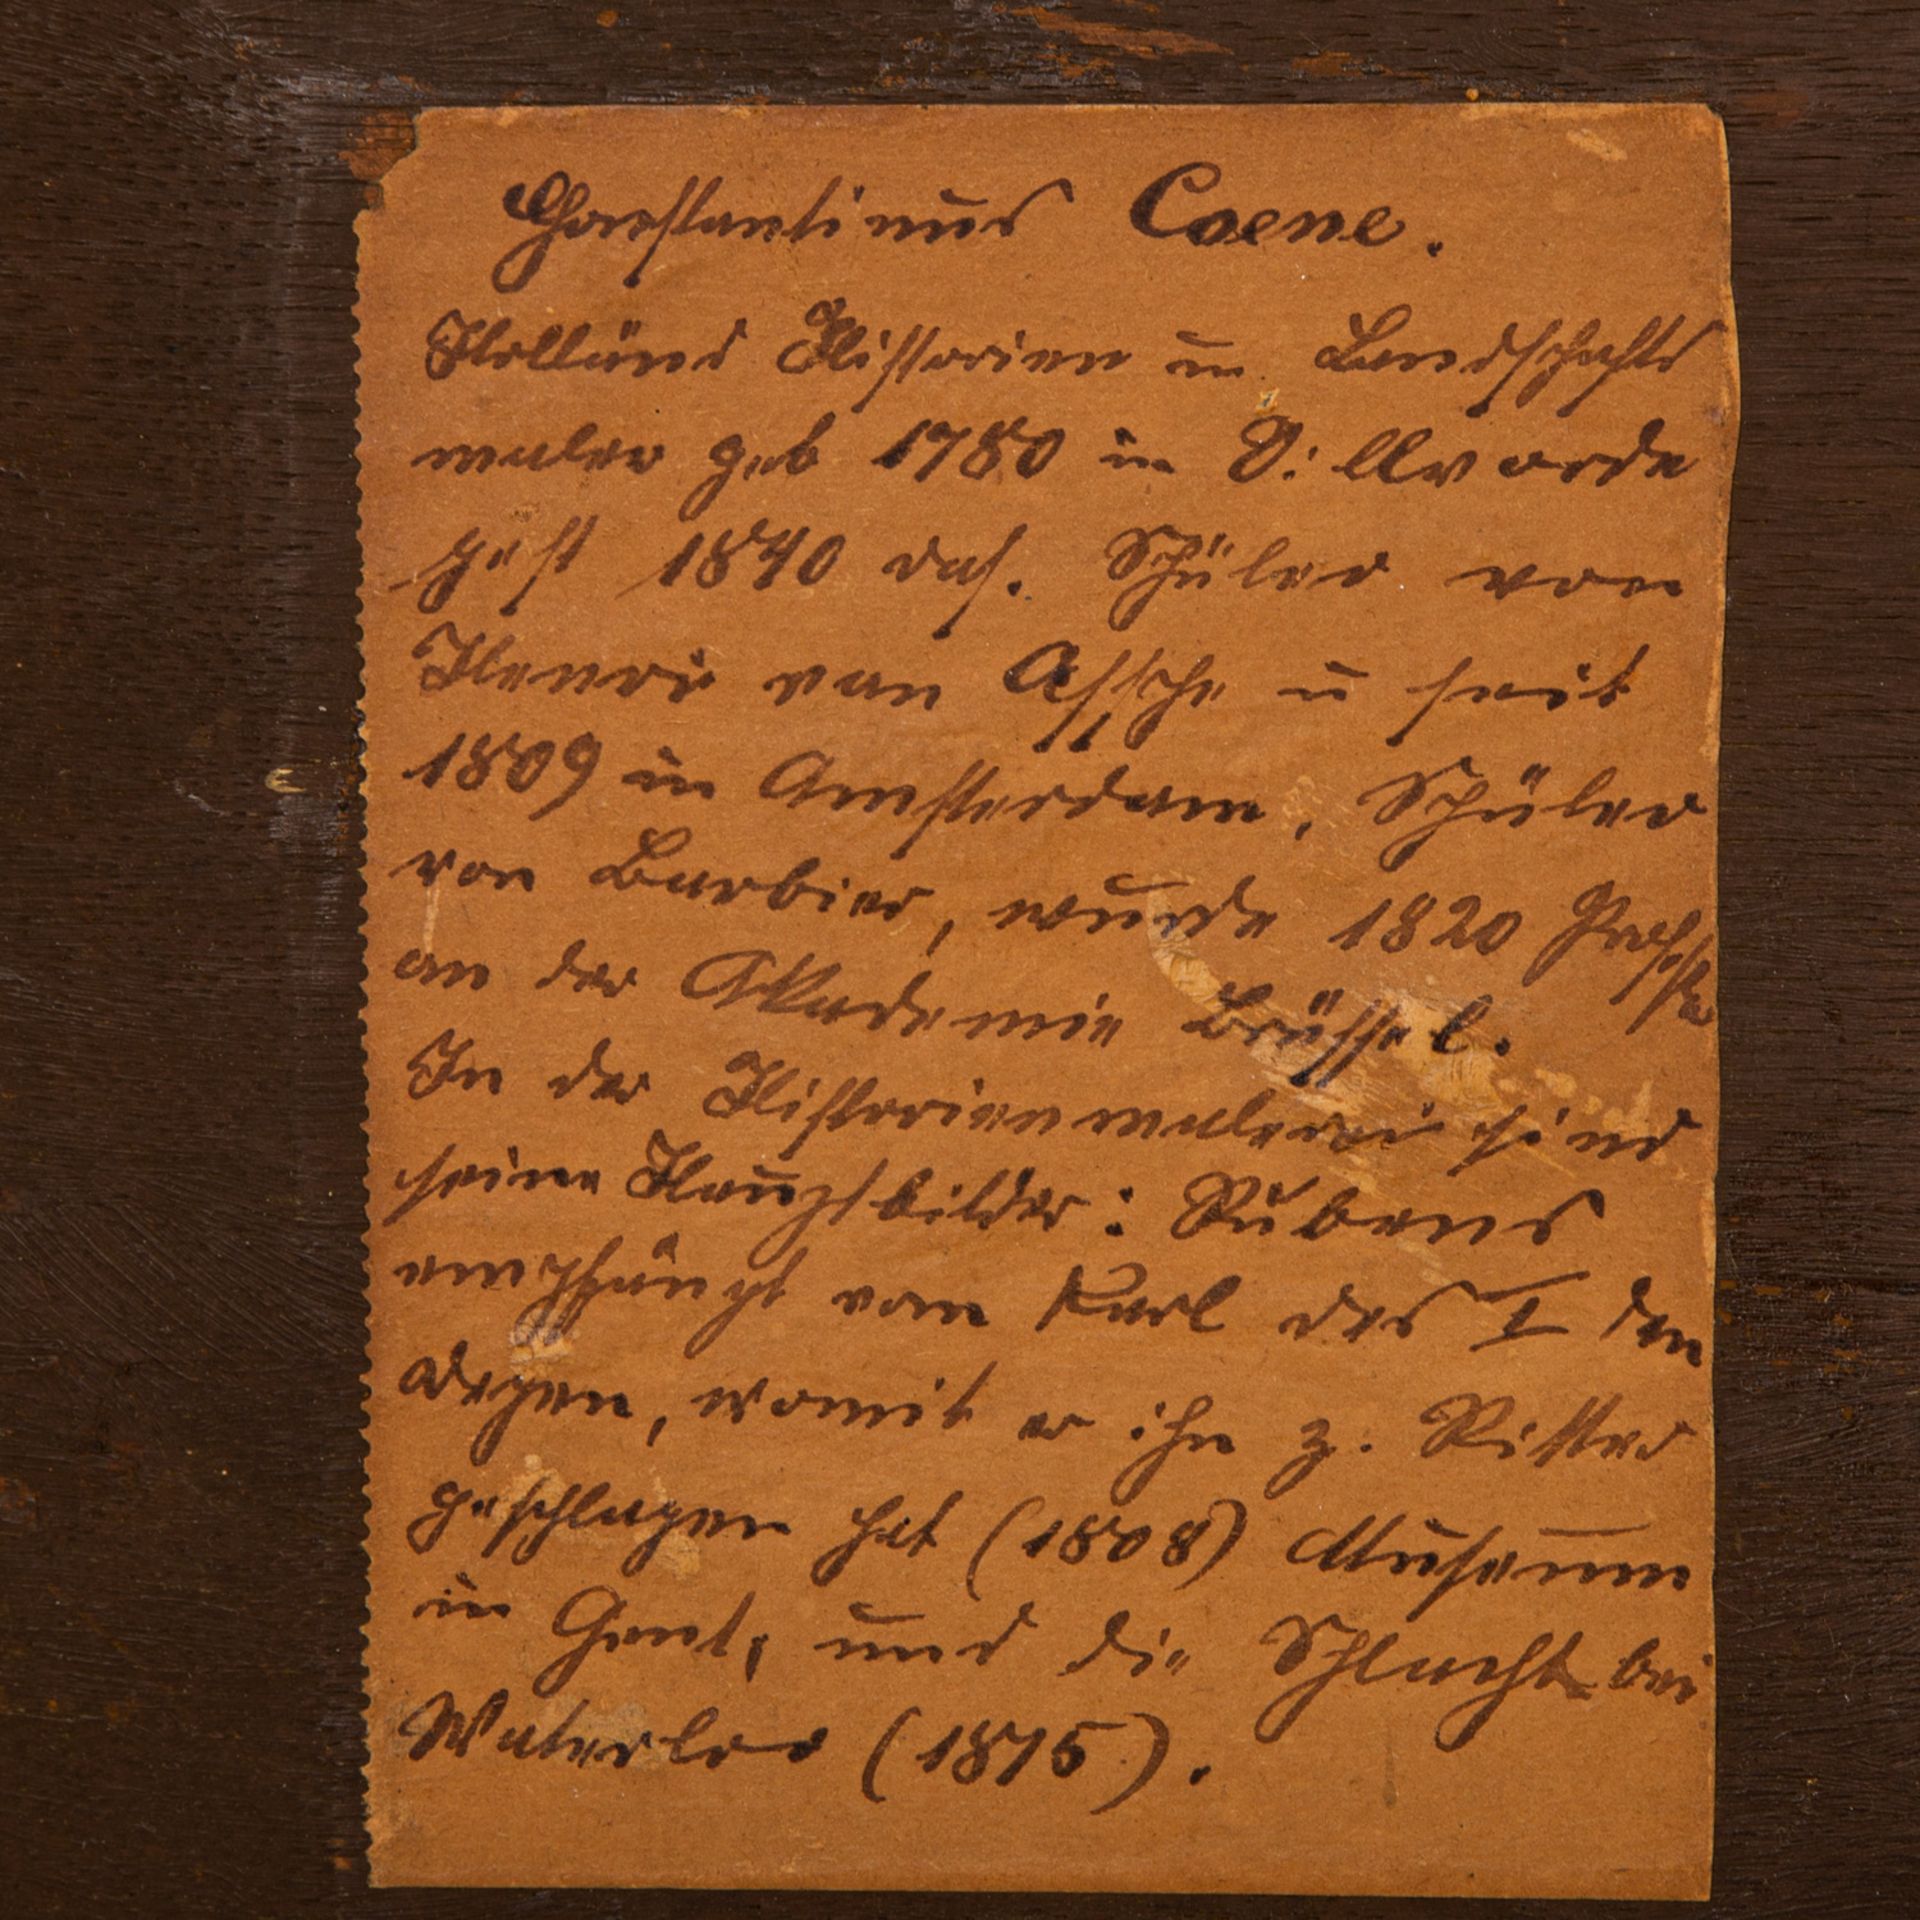 Constantinus Coene.
Holländ Historien u. Landschafts
maler geb 1780 in Villvorde
gest 1840 das. Schüler von
Henri van Assche u seit
1809 in Amsterdam, Schüler
von Barbier, wurde 1820
an der Akademie Brüssel.
In der Historienmalerei sind
seine Hauptbilder: Rubens
empfängt von Karl des I den
Degen, womit er ihn z. Ritter
geschlagen hat (1808) Museum
in Gent, und die Schlacht bei
Waterloo (1875).